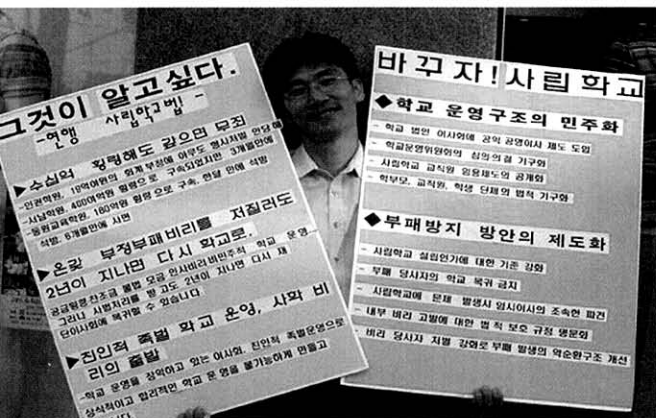 그것이 알고싶다.
-현행 사립학교법 -
▶수십억 횡령해도 갚으면 무죄
- 인권학원, 19억여원의 회계 부정에 아무도 형사처벌 안당해
- 서남학원, 400여억원 횡령으로 구속되었지만 3개월만에 석방
- 동원교육학원, 180억원 횡령으로 구속, 한달 만에 석방, 6개월만에 사면
▶온갖 부정부패비리를 저질러도
2년이 지나면 다시 학교로.
공금횡령 찬조금 불법 모금 인사비리 비민주적 학교 운영
그러나 사법처리를 받고도 2년이 지나면 다시 재
단이사회에 복귀할 수 있습니다
▶친인척 족벌 학교 운영, 사학 비
리의 출발
-학교 운영을 장악하고 있는 이사회, 친인척 족벌운영으로
상식적이고 합리적인 학교 운영을 불가능하게 만들고
바꾸자! 사립학교
◆학교 운영구조의 민주화
- 학교 법인 이사회에 공익 공영이사 제도 도입
- 학교운영위원회의 심의의결 기구화
- 사립학교 교직원 임용제도의 공개화
- 학부모, 교직원, 학생 단체의 법적 기구화
◆부패방지 방안의 제도화
- 사립학교 설립인가에 대한 기준 강화
- 부패 당사자의 학교 복귀 금지
- 사립학교에 문제 발생시 임시이사의 조속한 파견
- 내부 비리 고발에 대한 법적 보호 규정 명문화
- 비리 당사자 처벌 강화로 부패 발생의 악순환구조 개선